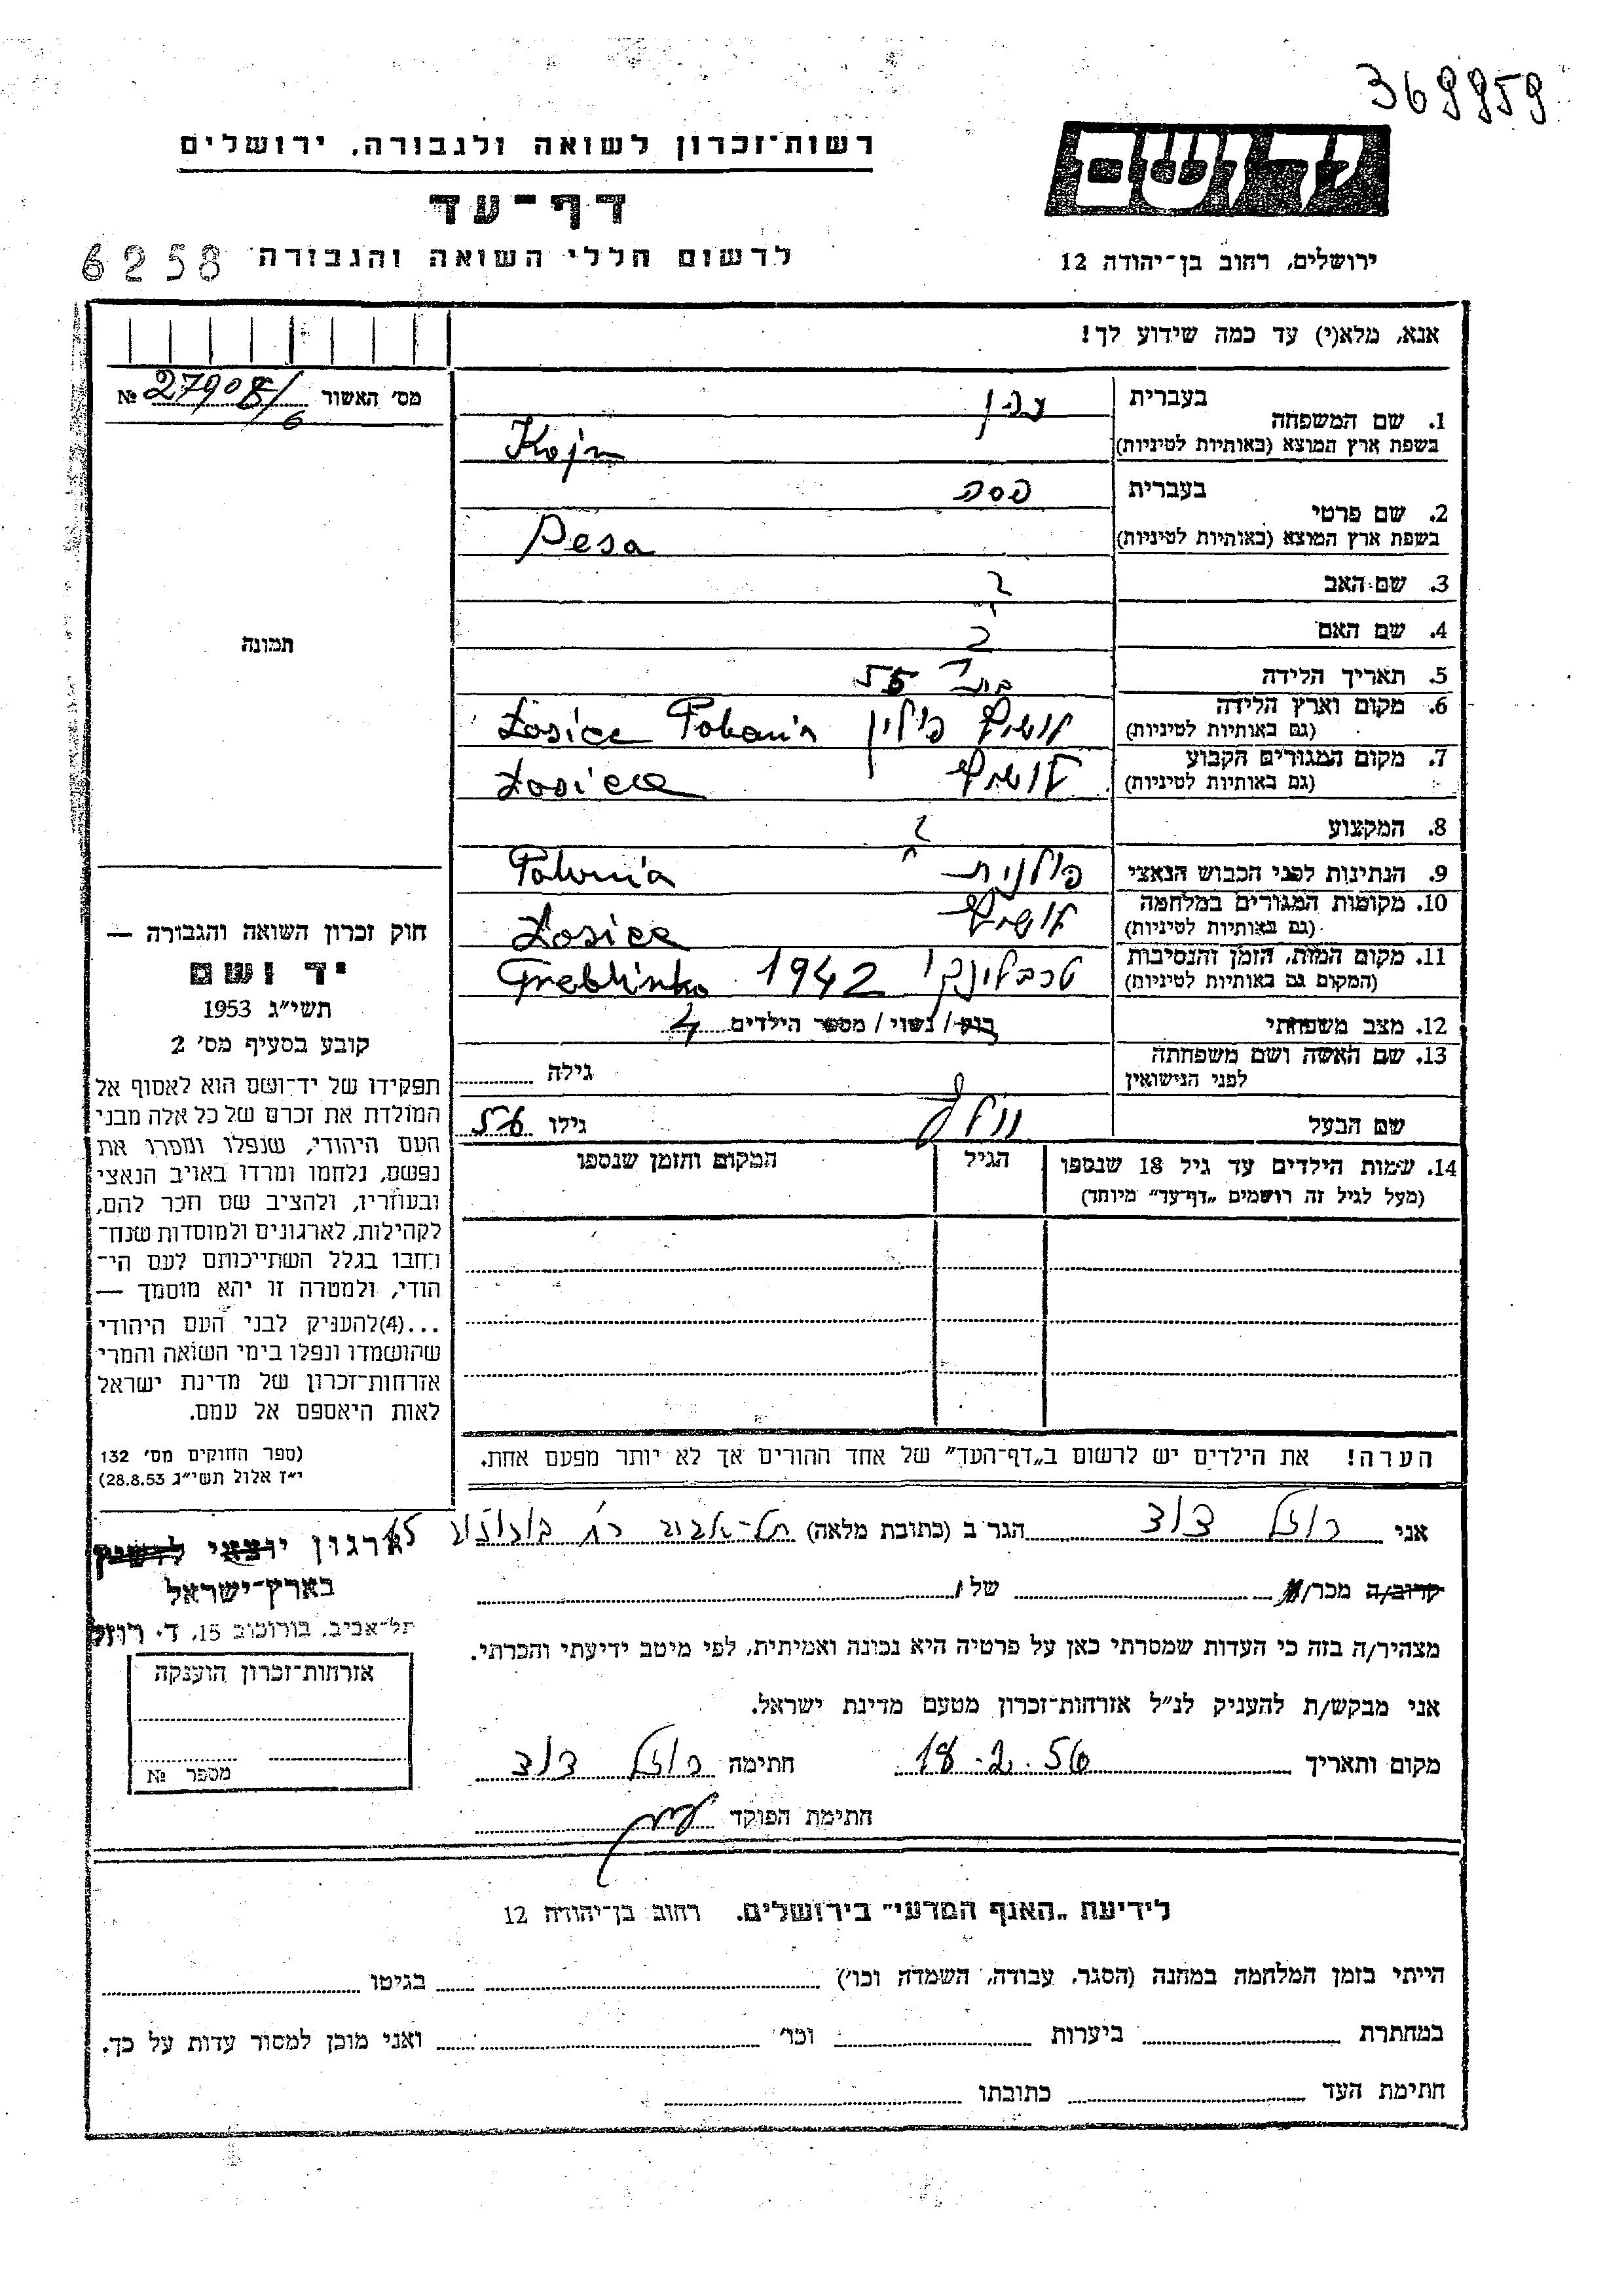 369959
רשות־זכרון לשואה ולגבורה, ירושלים
יד ושם
דף־עד
לרשום חללי השואה והגבורה 6258
ירושלים, רחוב בן־יהודה 12
אנא, מלא(י) עד כמה שידוע לך!
מס׳ האשור 27908/6 №
תמונה
1. שם המשפחה
בעברית
בשפת ארץ המוצא (באותיות לטיניות) Kojn
2. שם פרטי
בעברית פסה
בשפת ארץ המוצא (באותיות לטיניות) Pesa
3. שם האב ?
4. שם האם ?
5. תאריך הלידה בת 55
6. מקום וארץ הלידה
(גם באותיות לטיניות) פולין Łosice Polonia
7. מקום המגורים הקבוע
(גם באותיות לטיניות) Łosice
8. המקצוע ?
9. הנתינות לפני הכבוש הנאצי פולנית Polonia
10. מקומות המגורים במלחמה
(גם באותיות לטיניות) Łosice
11. מקום המות, הזמן והנסיבות
(המקום גם באותיות לטיניות) טרבלינקי 1942 Treblinka
12. מצב משפחתי רוק / נשוי / מספר הילדים 4
13. שם האשה ושם משפחתה
לפני הנישואין
גילה
שם הבעל
גילו 56
14. שמות הילדים עד גיל 18 שנספו
(מעל לגיל זה רושמים „דף־עד״ מיוחד)
הגיל
המקום והזמן שנספו
הערה! את הילדים יש לרשום ב„דף־העד״ של אחד ההורים אך לא יותר מפעם אחת.
חוק זכרון השואה והגבורה —
יד ושם
תשי״ג 1953
קובע בסעיף מס׳ 2
תפקידו של יד־ושם הוא לאסוף אל
המולדת את זכרם של כל אלה מבני
העם היהודי, שנפלו ומסרו את
נפשם, נלחמו ומרדו באויב הנאצי
ובעוזריו, ולהציב שם וזכר להם,
לקהילות, לארגונים ולמוסדות שנח־
רבו בגלל השתייכותם לעם הי־
הודי, ולמטרה זו יהא מוסמך —
...(4)להעניק לבני העם היהודי
שהושמדו ונפלו בימי השואה והמרי
אזרחות־זכרון של מדינת ישראל
לאות היאספם אל עמם.
(ספר החוקים מס׳ 132
י״ז אלול תשי״ג 28.8.53)
אני רוזל דוד הגר ב (כתובת מלאה) תל־אביב רח׳ בורוכוב 15
קרוב/ה מכר/ה של
מצהיר/ה בזה כי העדות שמסרתי כאן על פרטיה היא נכונה ואמיתית, לפי מיטב ידיעתי והכרתי.
אני מבקש/ת להעניק לנ״ל אזרחות־זכרון מטעם מדינת ישראל.
מקום ותאריך 18.2.56 חתימה רוזל דוד
חתימת הפוקד
ארגון יוצאי לושיץ
בארץ־ישראל
תל־אביב, בורוכוב 15, ד. רוזל
אזרחות־זכרון הוענקה
מספר №
לידיעת „האגף המדעי״ בירושלים. רחוב בן־יהודה 12
הייתי בזמן המלחמה במחנה (הסגר, עבודה, השמדה וכו׳) בגיטו
במחתרת ביערות וכו׳ ואני מוכן למסור עדות על כך.
חתימת העד כתובתו